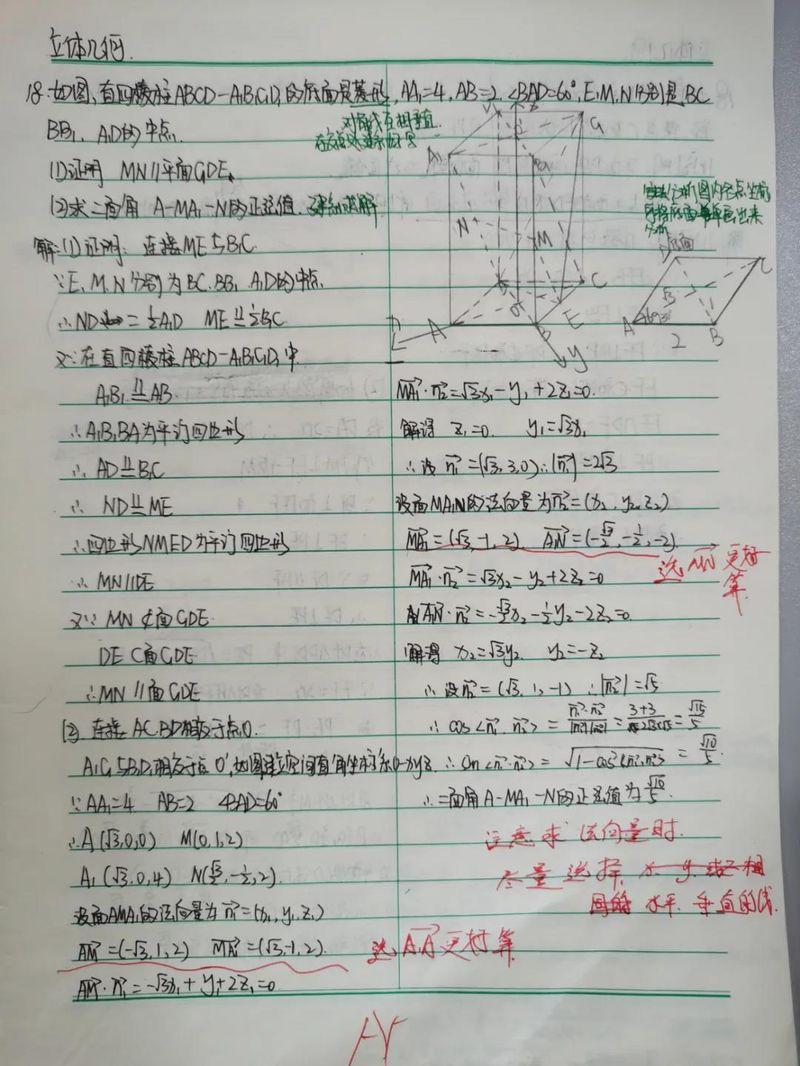 立体几何.
18.如图,直四棱柱ABCD-A₁B₁C₁D₁的底面是菱形,AA₁=4,AB=2,∠BAD=60°,E,M,N分别是BC
BB₁, A₁D的中点.
对角线互相垂直
(1)证明 MN∥平面C₁DE.
(2)求二面角 A-MA₁-N的正弦值.
解:(1)证明: 连接ME与B₁C
∵E, M, N分别为BC, BB₁, A₁D的中点.
∴ND = ½A₁D ME ∥= ½B₁C
又∵在直四棱柱ABCD-A₁B₁C₁D₁中
A₁B₁ ∥= AB.
∴A₁B₁BA为平行四边形
∴ A₁D ∥= B₁C
∴ ND ∥= ME
∴四边形NMED为平行四边形
∴ MN∥DE
又∵ MN ⊄面C₁DE.
DE ⊂面C₁DE.
∴MN∥面C₁DE
(2) 连接AC, BD相交于点O.
A₁C₁与B₁D₁相交于点O',如图建立空间直角坐标系O-xyz.
∵AA₁=4 AB=2 ∠BAD=60°
∴A(√3,0,0) M(0,1,2)
A₁(√3,0,4) N(√3/2,-½,2).
设面AMA₁的法向量为n₁=(x₁,y₁,z₁)
AM=(-√3,1,2) MA₁=(√3,-1,2).
选 A₁A 更好算
AM·n₁=-√3x₁+y₁+2z₁=0
A₁
N
M
A
B
C
E
y
A
60°
2
B
√3
MA₁·n₁=√3x₁-y₁+2z₁=0.
解得 z₁=0. y₁=√3x₁
∴设n₁=(√3,3,0)∴|n₁|=2√3
设面MA₁N的法向量为n₂=(x₂,y₂,z₂)
MA₁=(√3,-1,2) A₁N=(-√3/2,-½,-2).
选 MN 更好算
MA₁·n₂=√3x₂-y₂+2z₂=0
A₁N·n₂=-√3/2x₂-½y₂-2z₂=0.
解得 x₂=√3y₂. y₂=-z₂
∴设n₂=(√3,1,-1) ∴|n₂|=√5
∴cos<n₁,n₂>=n₁·n₂/|n₁||n₂|=3+3/2√3×√5=√15/5
∴sin<n₁·n₂>=√1-cos²<n₁,n₂>=√10/5.
∴二面角A-MA₁-N的正弦值为√10/5.
注意求法向量时
尽量选择
水平、垂直的线.